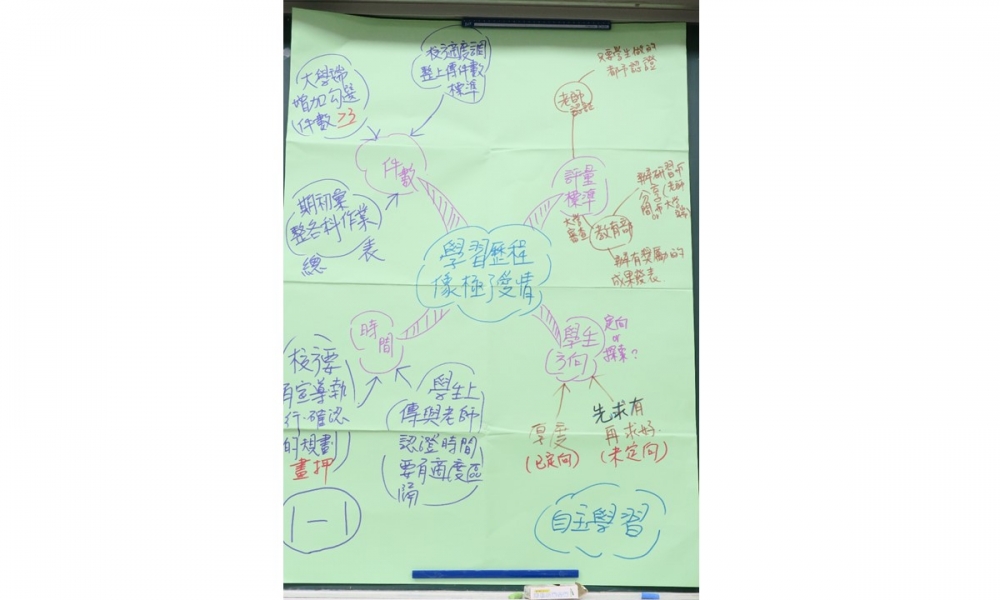 學習歷程
像極了愛情
件數
大學端
增加勾選
件數 >3
校方適度調
整上傳件數
標準
期初彙
整各科作業
總表
評量
標準
老師
認證
只要學生做的
都予認證
大學
審查
教育部
辦研習
分享
辦有獎勵的
成果發表
時間
校方要
有宣導執
行、確認
的規劃
畫押
學生上
傳與老師
認證時間
要有適度區
隔
學生
方向
定向
or
探索?
厚度
(已定向)
先求有
再求好
(未定向)
1-1
自主學習